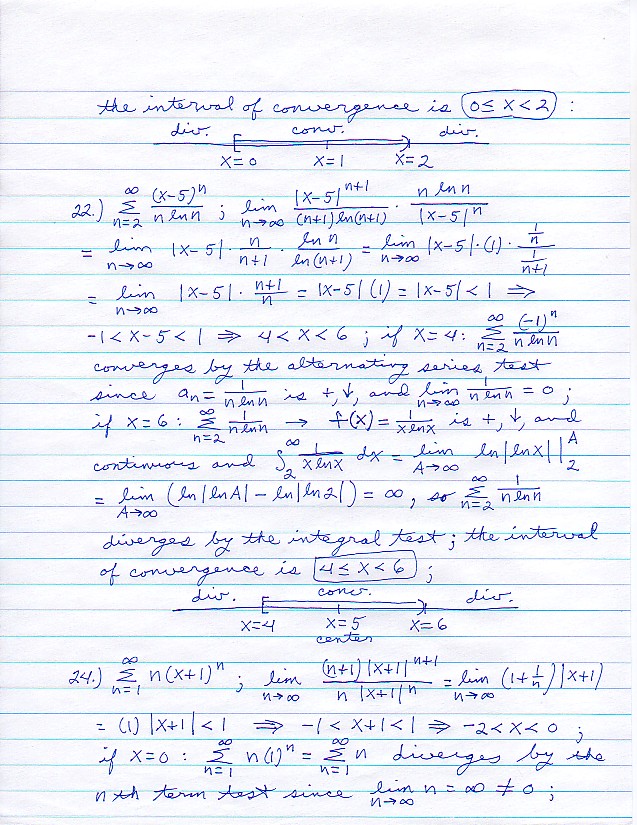 the interval of convergence is 0 ≤ x < 2 :
div. conv. div.
x=0 x=1 x=2
22.) ∞ Σ n=2 (x-5)^n / (n ln n) ; lim n→∞ |x-5|^(n+1) / ((n+1) ln(n+1)) · n ln n / |x-5|^n
= lim n→∞ |x-5| · n/(n+1) · ln n / ln(n+1) = lim n→∞ |x-5|·(1) · (1/n) / (1/(n+1))
= lim n→∞ |x-5| · (n+1)/n = |x-5| (1) = |x-5| < 1 ⇒
-1 < x-5 < 1 ⇒ 4 < x < 6 ; if x=4: ∞ Σ n=2 (-1)^n / (n ln n)
converges by the alternating series test
since a_n = 1/(n ln n) is +, ↓, and lim n→∞ 1/(n ln n) = 0 ;
if x=6 : ∞ Σ n=2 1/(n ln n) → f(x) = 1/(x ln x) is +, ↓, and
continuous and ∫_2^∞ 1/(x ln x) dx = lim A→∞ ln|ln x| |_2^A
= lim A→∞ (ln|ln A| - ln|ln 2|) = ∞, so ∞ Σ n=2 1/(n ln n)
diverges by the integral test ; the interval
of convergence is 4 ≤ x < 6 ;
div. conv. div.
x=4 x=5 x=6
center
24.) ∞ Σ n=1 n(x+1)^n ; lim n→∞ (n+1)|x+1|^(n+1) / (n |x+1|^n) = lim n→∞ (1+1/n)|x+1|
= (1) |x+1| < 1 ⇒ -1 < x+1 < 1 ⇒ -2 < x < 0 ;
if x=0 : ∞ Σ n=1 n(1)^n = ∞ Σ n=1 n diverges by the
nth term test since lim n→∞ n = ∞ ≠ 0 ;